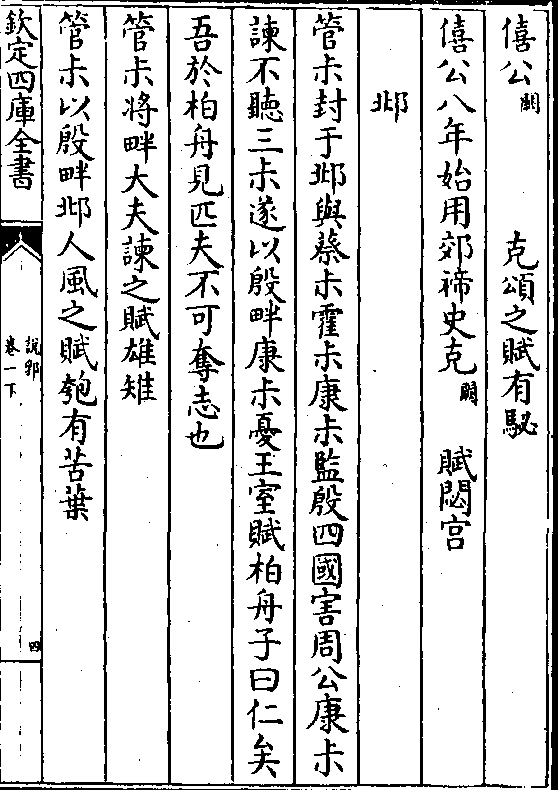 僖公闕　克頌之賦有駜
僖公八年始用郊禘史克闕　賦閟宫
邶
管尗封于邶與蔡尗霍尗康尗監殷四國害周公康尗
諫不聽三尗遂以殷畔康尗憂王室賦柏舟子曰仁矣
吾於柏舟見匹夫不可奪志也
管尗将畔大夫諫之賦雄雉
管尗以殷畔邶人風之賦匏有苦葉
欽定四庫全書
說郛
卷一下
四